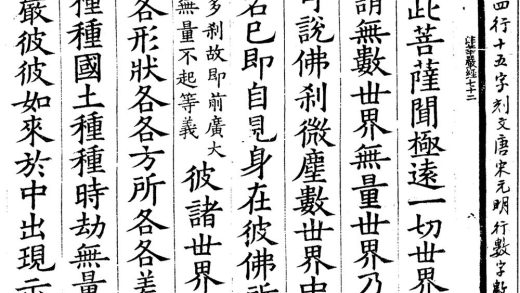 四行十五字刻文唐宋元明行數字數
嚴經七十二
此菩薩聞極遠一切世界
謂無數世界無量世界乃
可說佛刹微塵數世界中
名已即自見身在彼佛所
多刹故即前廣大
無量不起等義
彼諸世界
各形狀各各方所各各差
種種國土種種時劫無量
嚴彼彼如來於中出現